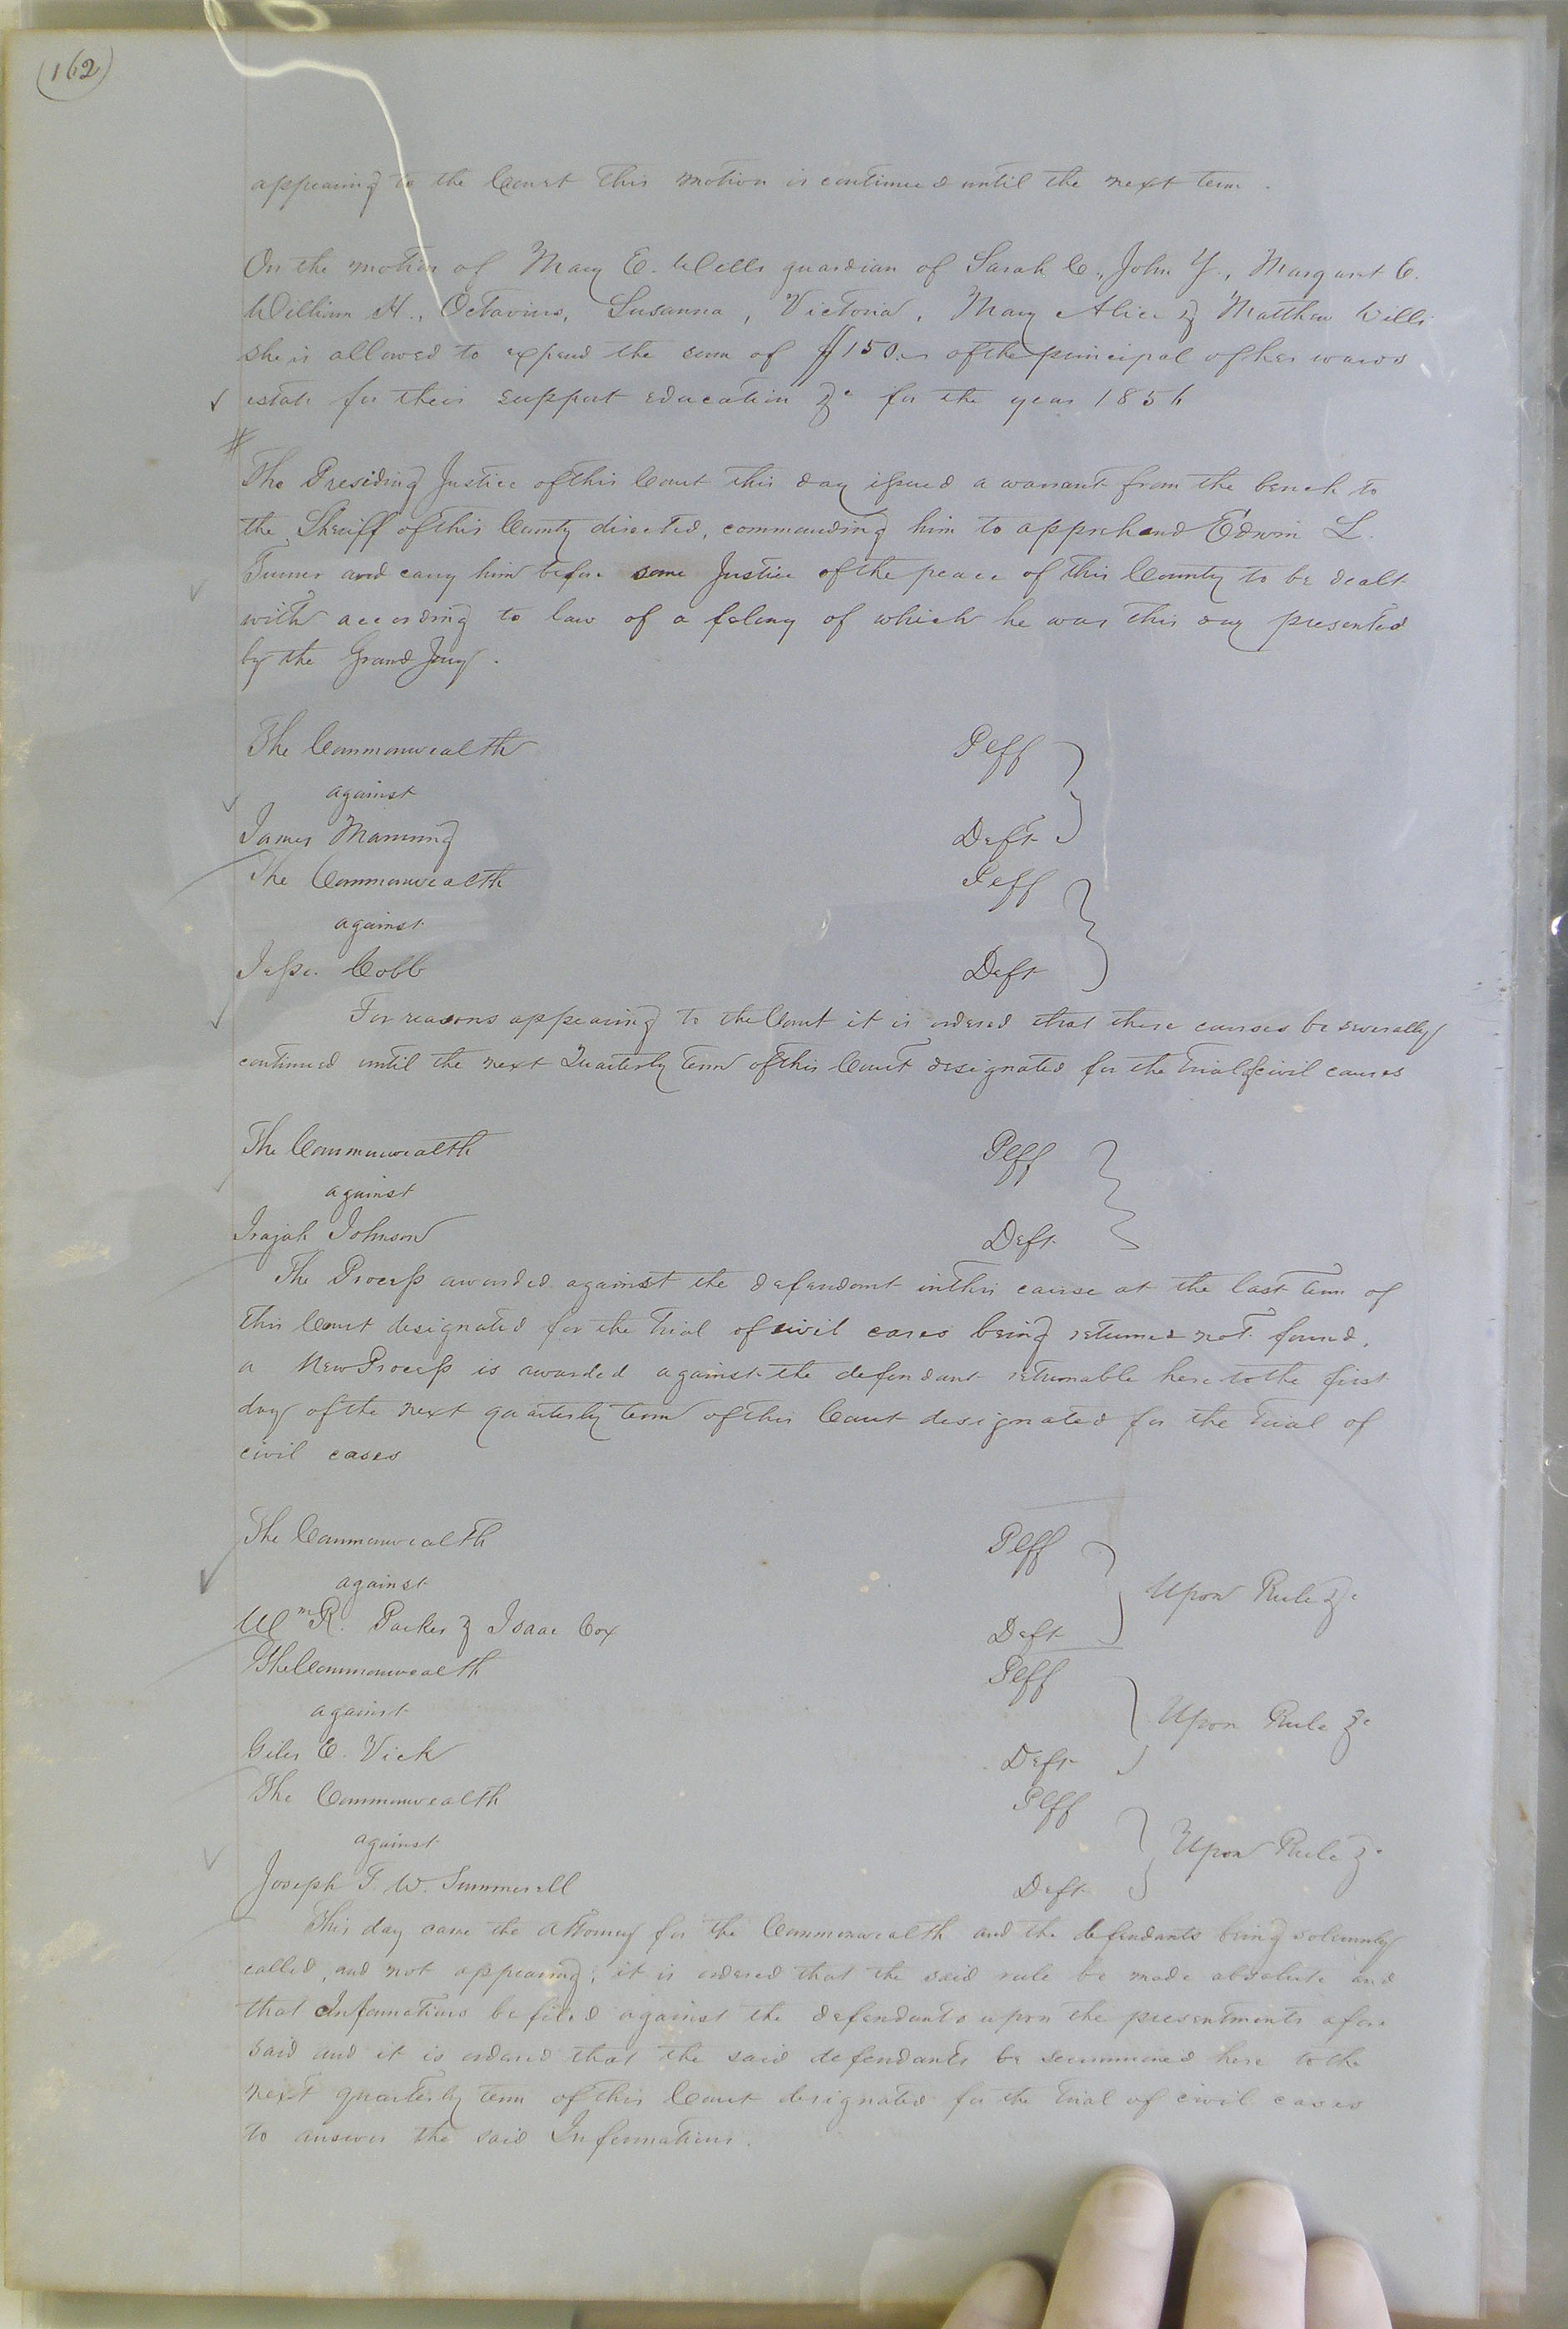 (162)
appearing to the Court this motion is continued until the next term.
On the motion of Mary E. Wells guardian of Sarah C., John Y., Margaret C.
William H., Octavius, Susanna, Victoria, Mary Alice & Matthew Wills
she is allowed to expend the sum of $150.— of the principal of her wards
estate for their support education &c for the year 1856
#
The Presiding Justice of this Court this day issued a warrant from the bench to
the Sheriff of this County directed, commanding him to apprehend Edwin L.
Turner and carry him before some Justice of the peace of this County to be dealt
with according to law of a felony of which he was this day presented
by the Grand Jury.
The Commonwealth Plff
against
James Manning Deft
The Commonwealth Plff
against
Jesse Cobb Deft
For reasons appearing to the Court it is ordered that these causes be severally
continued until the next Quarterly term of this Court designated for the trial of civil causes
The Commonwealth Plff
against
Isajah Johnson Deft
The Process awarded against the defendant in this cause at the last term of
this Court designated for the trial of civil cases being returned not found,
a New Process is awarded against the defendant returnable here to the first
day of the next quarterly term of this Court designated for the trial of
civil cases
The Commonwealth Plff
against Upon Rule &c
Wm R. Parker & Isaac Cox Deft
The Commonwealth Plff
against Upon Rule &c
Giles E. Vick Deft
The Commonwealth Plff
against Upon Rule &c
Joseph T. W. Summerell Deft
This day came the attorney for the Commonwealth and the defendants being solemnly
called, and not appearing, it is ordered that the said rule be made absolute and
that Informations be filed against the defendants upon the presentments afore
said and it is ordered that the said defendants be summoned here to the
next quarterly term of this Court designated for the trial of civil cases
to answer the said Informations.